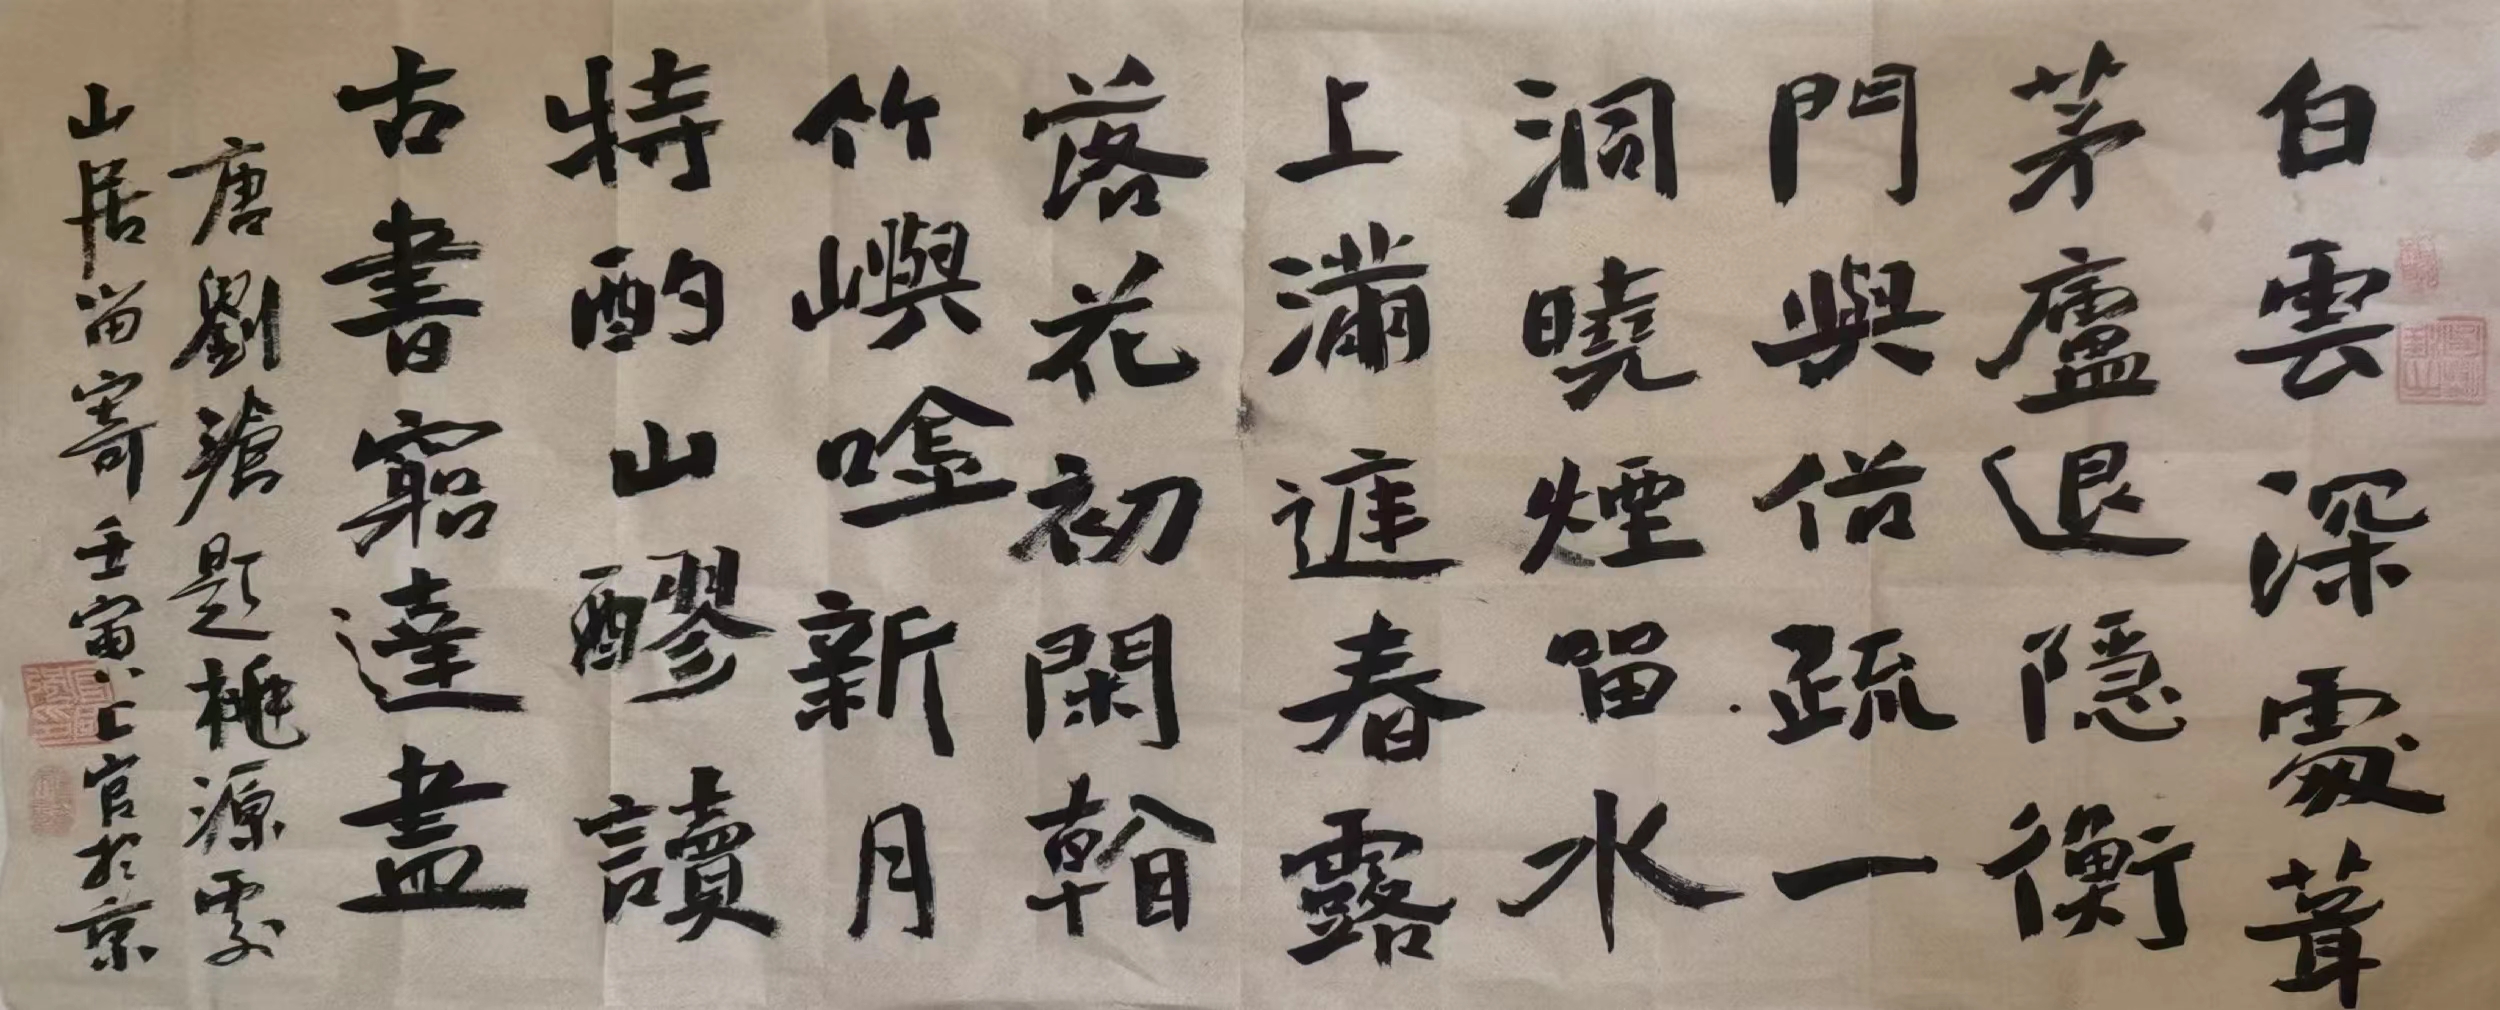 白雲深處葺
茅廬退隱衡
門與俗疏一
洞曉煙留水
上滿庭春露
落花初閑看
竹嶼唫新月
特酌山醪讀
古書窮達盡
唐劉滄題桃源處
山居留寄壬寅官於京